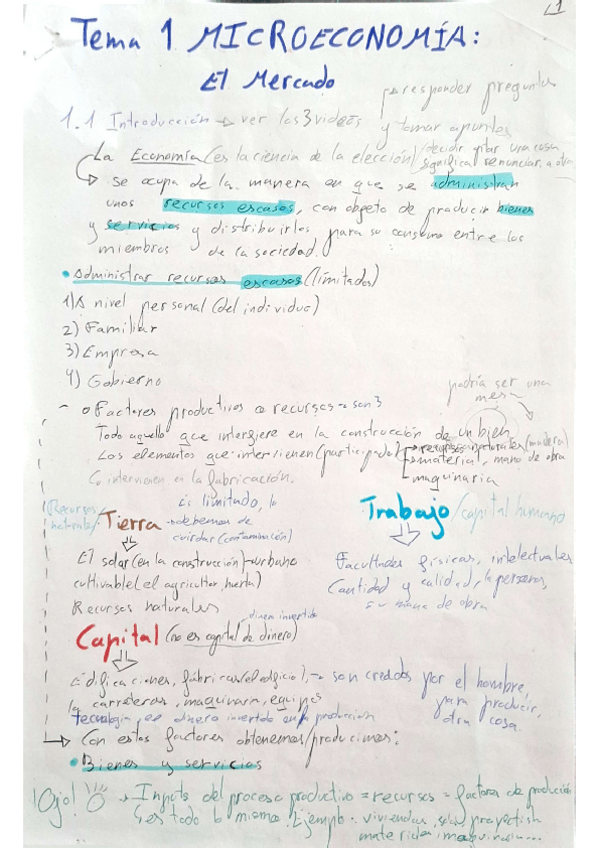 1
Tema 1 MICROECONOMÍA:
El Mercado
para responder preguntas
1.1 Introducción → ver los 3 videos y tomar apuntes
La Economía (es la ciencia de la elección) decidir pillar una cosa
significa renunciar a otra
se ocupa de la manera en que se administran
unos recursos escasos, con objeto de producir bienes
y servicios y distribuirlos para su consumo entre los
miembros de la sociedad.
• Administrar recursos escasos (limitados)
1) A nivel personal (del individuo)
2) Familiar
3) Empresa
4) Gobierno
podría ser una
mesa
Factores productivos o recursos → son 3
Todo aquello que interfiere en la construcción de un bien
Los elementos que intervienen (participado) → recursos naturales (madera)
→ material, mano de obra
→ maquinaria
intervienen en la fabricación.
Recursos naturales/ Tierra
Es limitado, lo
debemos de
cuidar (contaminación)
El solar (en la construcción) → urbano
cultivable (el agricultor, huerta)
Recursos naturales
Trabajo / capital humano
Facultades físicas, intelectuales
Cantidad y calidad, la persona,
su mano de obra
dinero invertido
Capital (no es capital de dinero)
Edificaciones, fábricas (el edificio), → son creados por el hombre,
la carreteras, maquinaria, equipos para producir
tecnología, es dinero invertido en la producción otra cosa.
→ Con estos factores obtenemos/producimos:
• Bienes y servicios
¡Ojo! → Inputs del proceso productivo = recursos = factores de producción
es todo lo mismo. Ejemplo: viviendas, solar, proyectista
materiales, maquinaria...